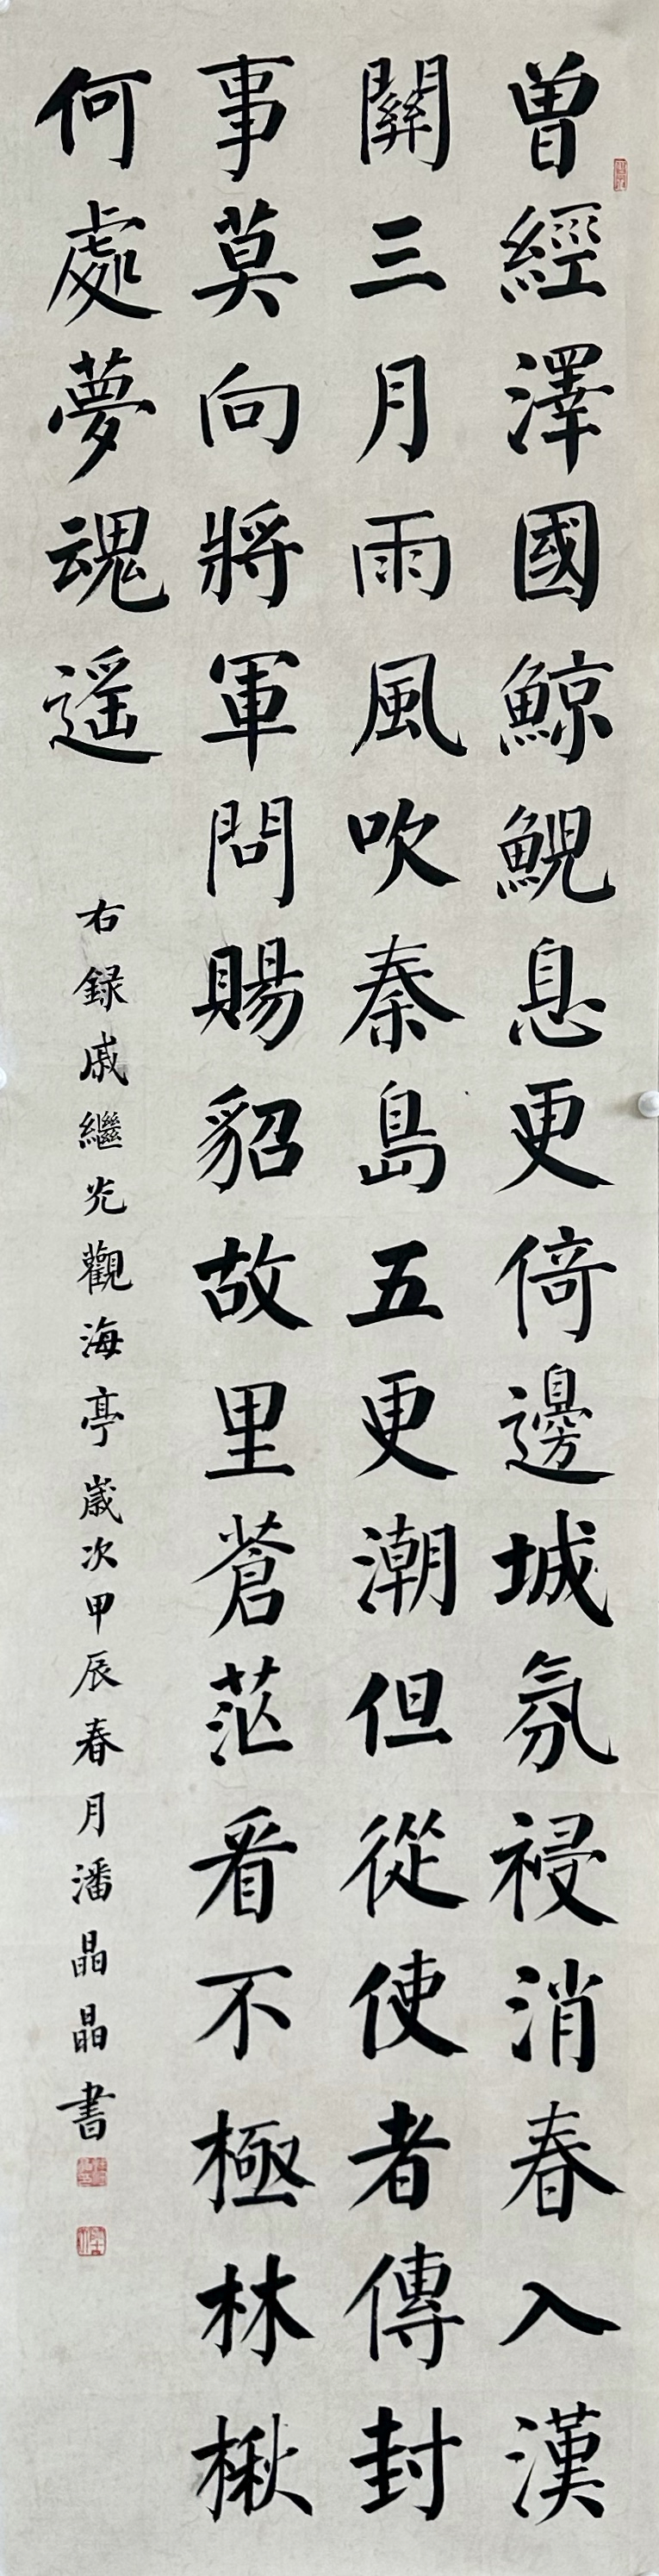 曾經澤國鯨鯢息更倚邊城氛祲消春入漢
關三月雨風吹秦島五更潮但從使者傳封
事莫向將軍問賜貂故里蒼茫看不極林楸
何處夢魂遥
右録戚繼光觀海亭歲次甲辰春月潘晶晶書